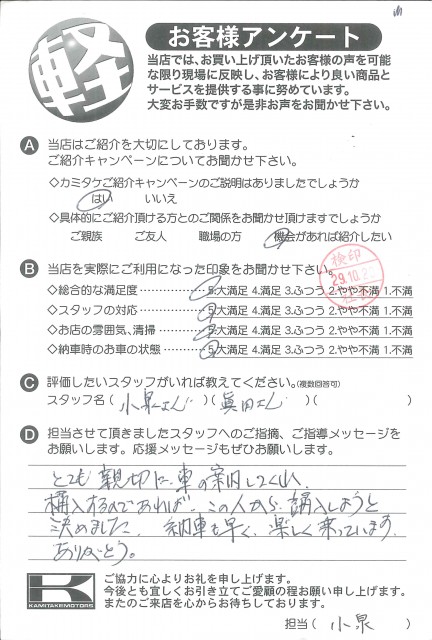 軽
お客様アンケート
当店では、お買い上げ頂いたお客様の声を可能
な限り現場に反映し、お客様により良い商品と
サービスを提供する事に努めています。
大変お手数ですが是非お声をお聞かせ下さい。
A 当店はご紹介を大切にしております。
ご紹介キャンペーンについてお聞かせ下さい。
◇カミタケご紹介キャンペーンのご説明はありましたでしょうか
はい いいえ
◇具体的にご紹介頂ける方とのご関係をお聞かせ頂けますでしょうか
ご親族 ご友人 職場の方 機会があれば紹介したい
B 当店を実際にご利用になった印象をお聞かせ下さい。
検印
29.10.2
◇総合的な満足度 5.大満足 4.満足 3.ふつう 2.やや不満 1.不満
◇スタッフの対応 5.大満足 4.満足 3.ふつう 2.やや不満 1.不満
◇お店の雰囲気、清掃 5.大満足 4.満足 3.ふつう 2.やや不満 1.不満
◇納車時のお車の状態 5.大満足 4.満足 3.ふつう 2.やや不満 1.不満
C 評価したいスタッフがいれば教えてください。(複数回答可)
スタッフ名 ( 小泉さん )( 眞田さん )( )
D 担当させて頂きましたスタッフへのご指摘、ご指導メッセージを
お願いします。応援メッセージもぜひお願いします。
とても親切に車の案内してくれ
購入するのであれば この人から 購入しようと
決めました 納車も早く、楽しく乗っています
ありがとう。
K
KAMITAKEMOTORS
ご協力に心よりお礼を申し上げます。
今後とも宜しくお引き立てご愛顧の程お願い申し上げます。
またのご来店を心からお待ちしております。
担当 ( 小泉 )